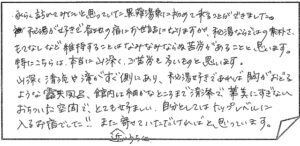 永らく訪れてみたいと思っていた黒薙温泉に初めて来ることができました。
秘湯が好きで各地の宿にお世話になりますが、秘湯ならではの素朴さ、
もてなしなど維持することはなかなかならぬ苦労があることと思います。
特にこちらは、本当に山深く、ご苦労も多いものと思います。
山深く清流が湯べすぐ側にあり、秘湯好きであれば胸がおどる
ような露天風呂、館内は細かなところまで清潔で華美にすぎない
おちついた空間で、とてもすばらしい、自分としてはトップレベルに
入るお宿でした!! また寄せていただければと思っています。
近いうちに